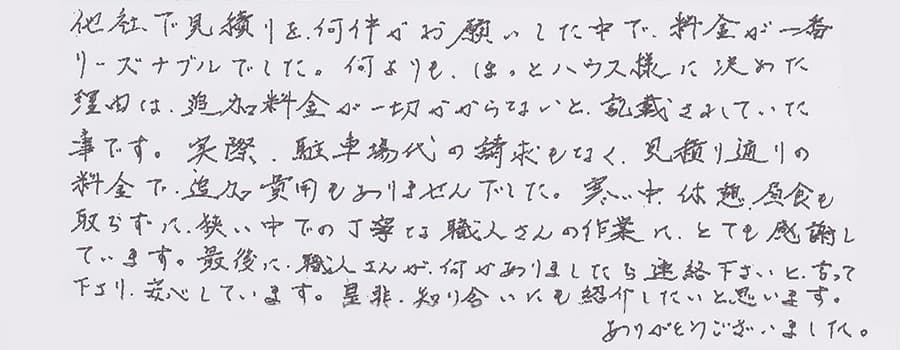 他社で見積りを、何件かお願いした中で、料金が一番
リーズナブルでした。何よりも、ほっとハウス様に決めた
理由は、追加料金が一切かからないと、記載されていた
事です。実際、駐車場代の請求もなく、見積り通りの
料金で、追加費用もありませんでした。寒い中、休憩、昼食も
取らずに、狭い中での丁寧な職人さんの作業に、とても感謝し
ています。最後に、職人さんが、何かありましたら連絡下さいと、言って
下さり、安心しています。是非、知り合いにも紹介したいと思います。
ありがとうございました。